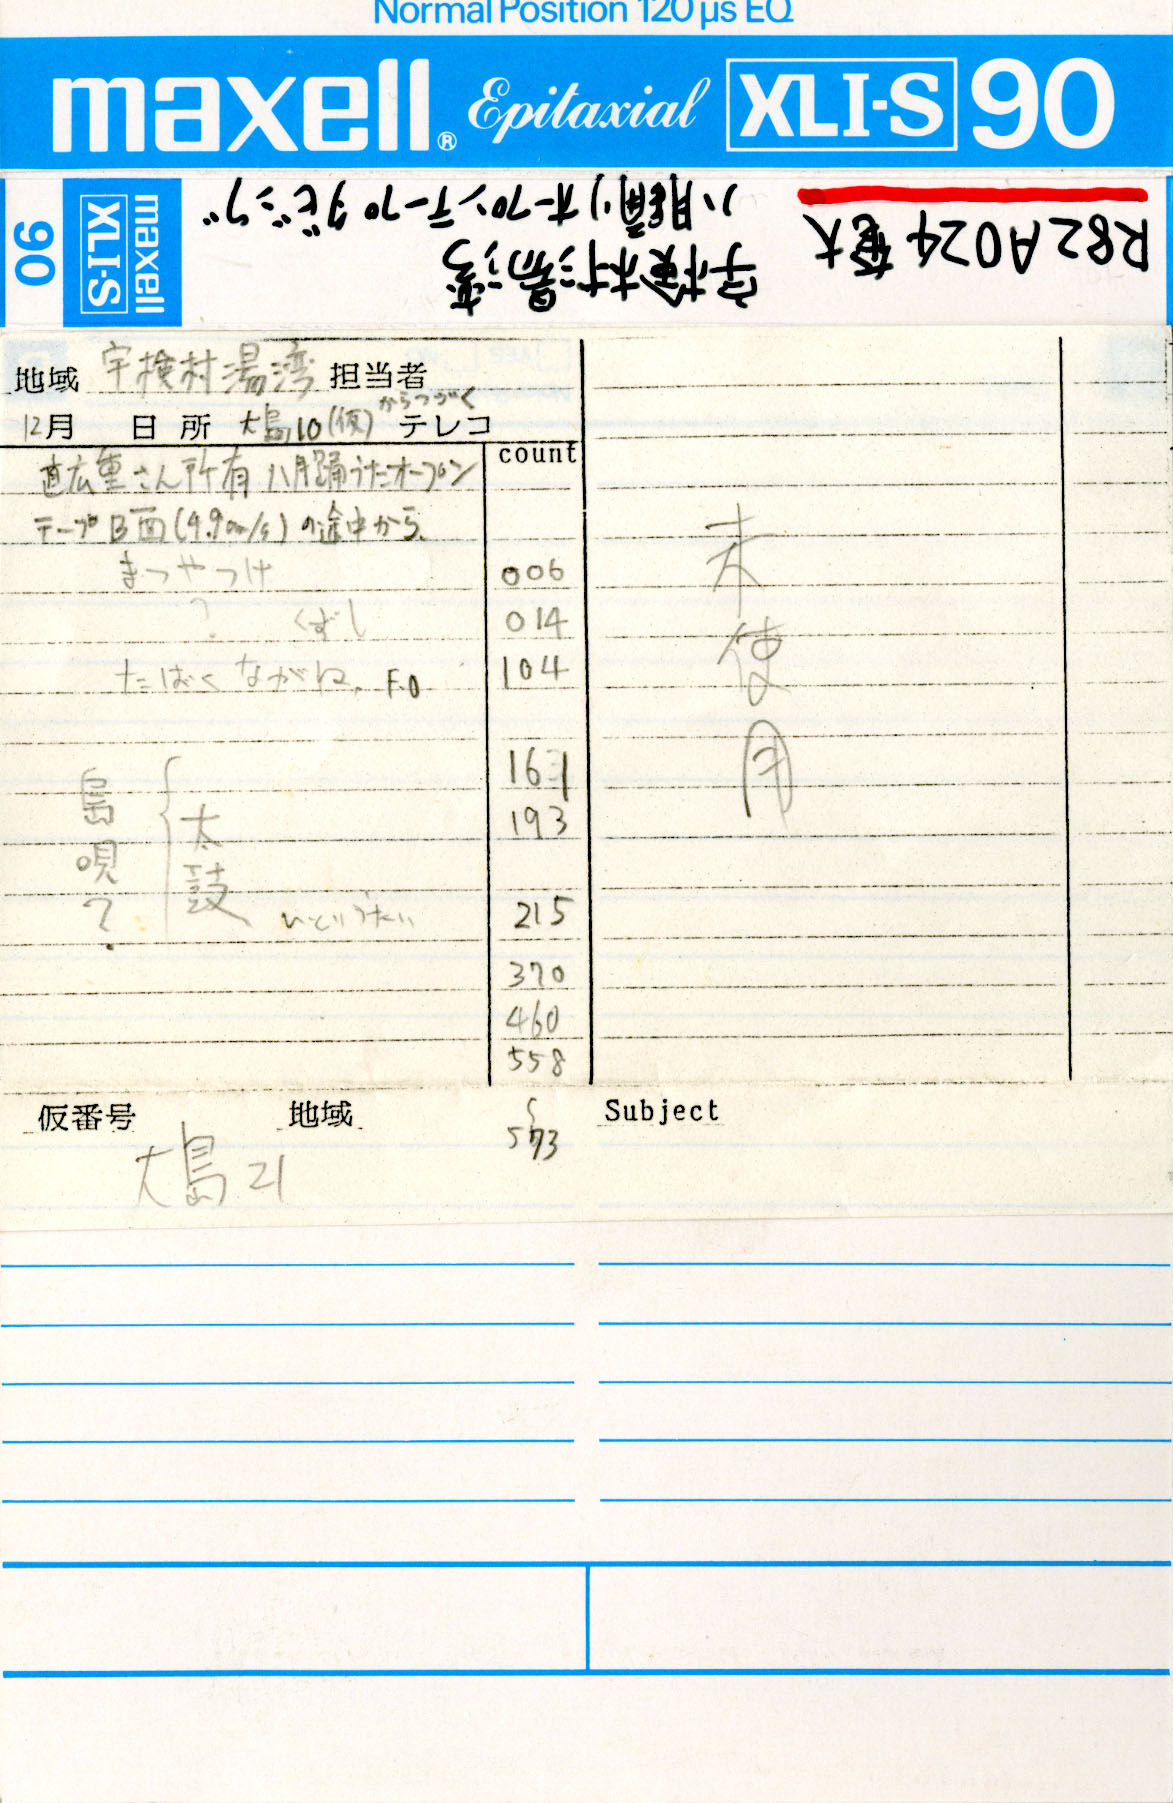 Normal Position 120 µs EQ
maxell® Epitaxial XLI-S 90
90 XLI-S maxell
R82A024 奄大
宇検村湯湾
八月踊りオープンテープダビング
地域 宇検村湯湾 担当者
からつづく
12月 日 所 大島10(仮) テレコ
count
直広重さん所有 八月踊うたオープン
テープB面(4.9cm/s)の途中から
まつやつけ 006
? くずし 014
たばくながね F.O 104
161
193
島唄?
太鼓
215
370
460
558
573
未使用
仮番号 地域 Subject
大島21